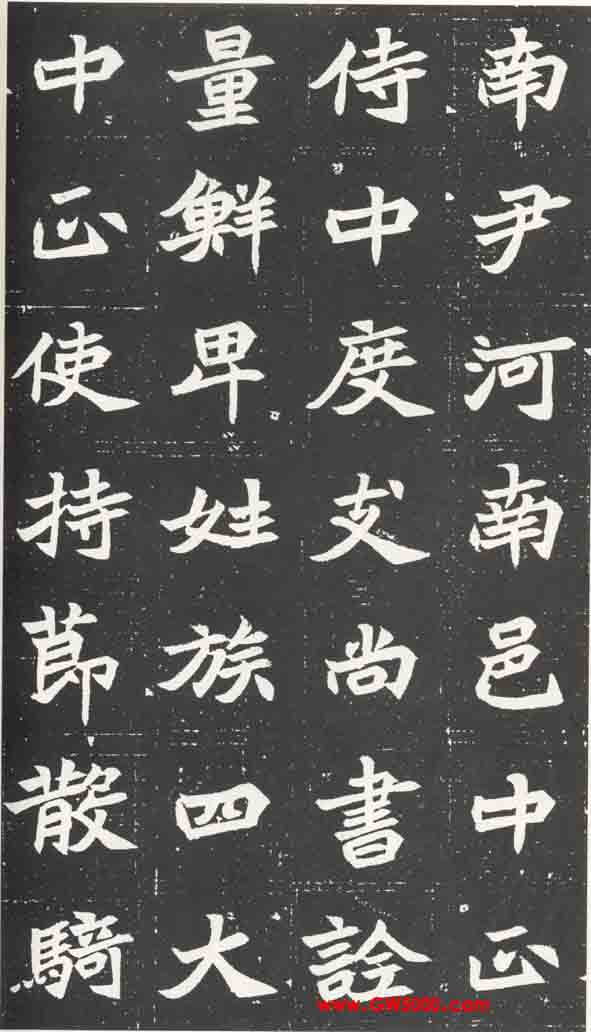 南尹河南邑中正
侍中度支尚書詮
量鮮卑姓族四大
中正使持節散騎
www.GW5000.com